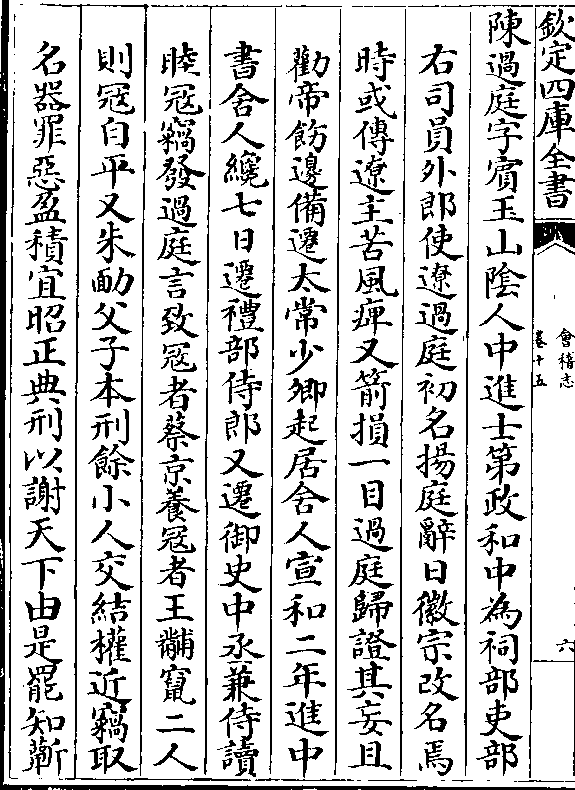 欽定四庫全書
會稽志
卷十五
六
陳過庭字賓王山陰人中進士第政和中為祠部吏部
右司員外郎使遼過庭初名揚庭辭日徽宗改名焉
時或傳遼主苦風痺又箭損一目過庭歸證其妄且
勸帝飭邊備遷太常少卿起居舍人宣和二年進中
書舍人纔七日遷禮部侍郎又遷御史中丞兼侍讀
睦冦竊發過庭言致冦者蔡京養冦者王黼竄二人
則冦自平又朱勔父子本刑餘小人交結權近竊取
名器罪惡盈積宜昭正典刑以謝天下由是罷知蘄